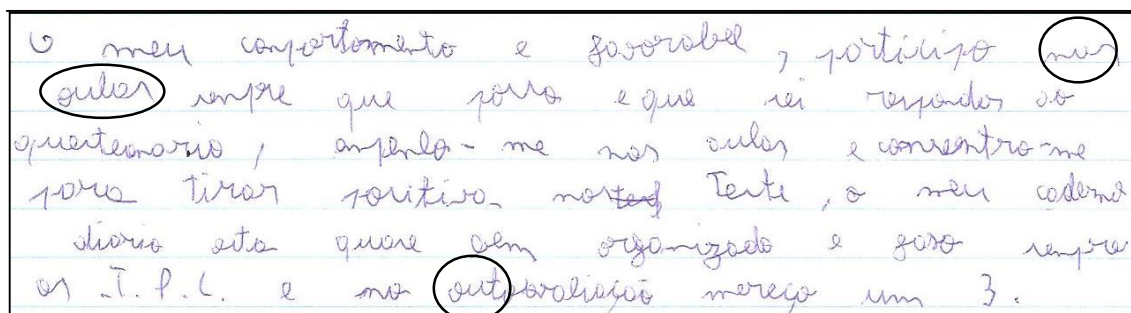 O meu comportamento e favorabel, participo nas
aulas sempre que posso e que sei responder ao
questeonario, empenho-me nas aulas e consentro-me
para tirar positiva no Teste, o meu caderno
diario esta quase bem organizado e faso sempre
os T.P.C. e na autoavaliação mereço um 3.